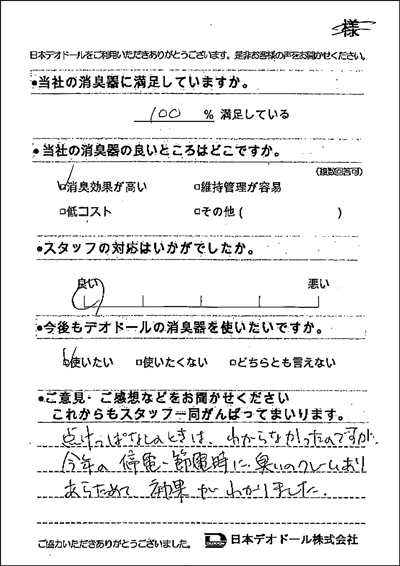 様
日本デオドールをご利用いただきありがとうございます。是非お客様の声をお聞かせください。
●当社の消臭器に満足していますか。
100 % 満足している
●当社の消臭器の良いところはどこですか。
(複数回答可)
☑消臭効果が高い □維持管理が容易
□低コスト □その他( )
●スタッフの対応はいかがでしたか。
良い 悪い
●今後もデオドールの消臭器を使いたいですか。
☑使いたい □使いたくない □どちらとも言えない
●ご意見・ご感想などをお聞かせください
これからもスタッフ一同がんばってまいります。
点けっぱなしのときは、わからなかったのですが、
今年の停電・節電時に臭いのクレームあり
あらためて効果がわかりました.
ご協力いただきありがとうございました。 日本デオドール株式会社